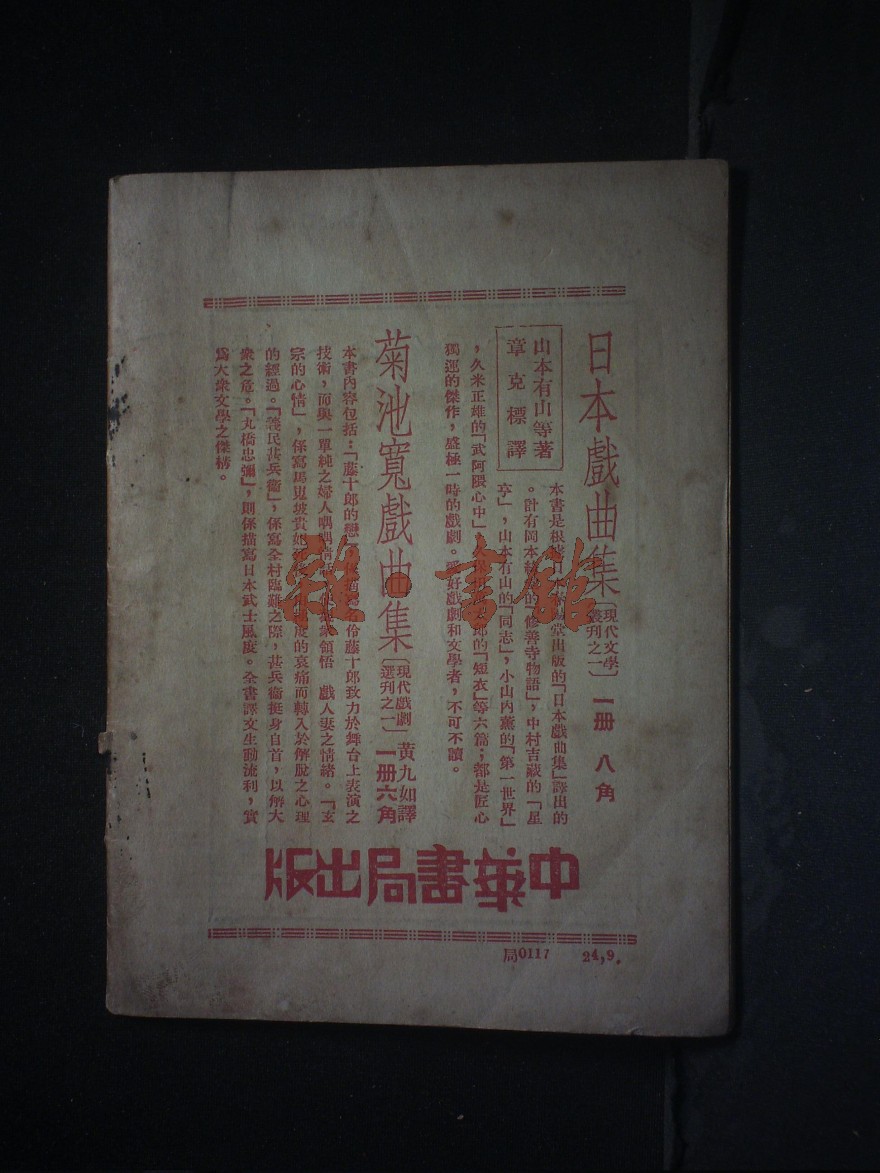 日本戲曲集
〔現代文學
叢刊之一〕
一册 八角
山本有山等著
章克標譯
本書是根據
堂出版的「日本戲曲集」譯出的
。計有岡本綺堂的「修善寺物語」，中村吉藏的「星
亭」，山本有山的「同志」，小山内薰的「第一世界」
，久米正雄的「武阿隈心中」
郎的「短衣」等六篇；都是匠心
獨運的傑作，盛極一時的戲劇。愛好戲劇和文學者，不可不讀。
菊池寬戲曲集
〔現代戲劇
選刊之一〕
黄九如譯
一册六角
本書内容包括：「藤十郎的戀
伶藤十郎致力於舞台上表演之
技術，而與一單純之婦人喁喁情話
領悟 戲人妻之情緒。「玄
宗的心情」，係寫馬嵬坡貴妃
度的哀痛而轉入於解脫之心理
的經過。「義民甚兵衞」，係寫全村臨難之際，甚兵衞挺身自首，以解大
衆之危。「丸橋忠彌」，則係描寫日本武士風度。全書譯文生動流利，實
爲大衆文學之傑構。
中華書局出版
局0117 24,9.
雜·書館